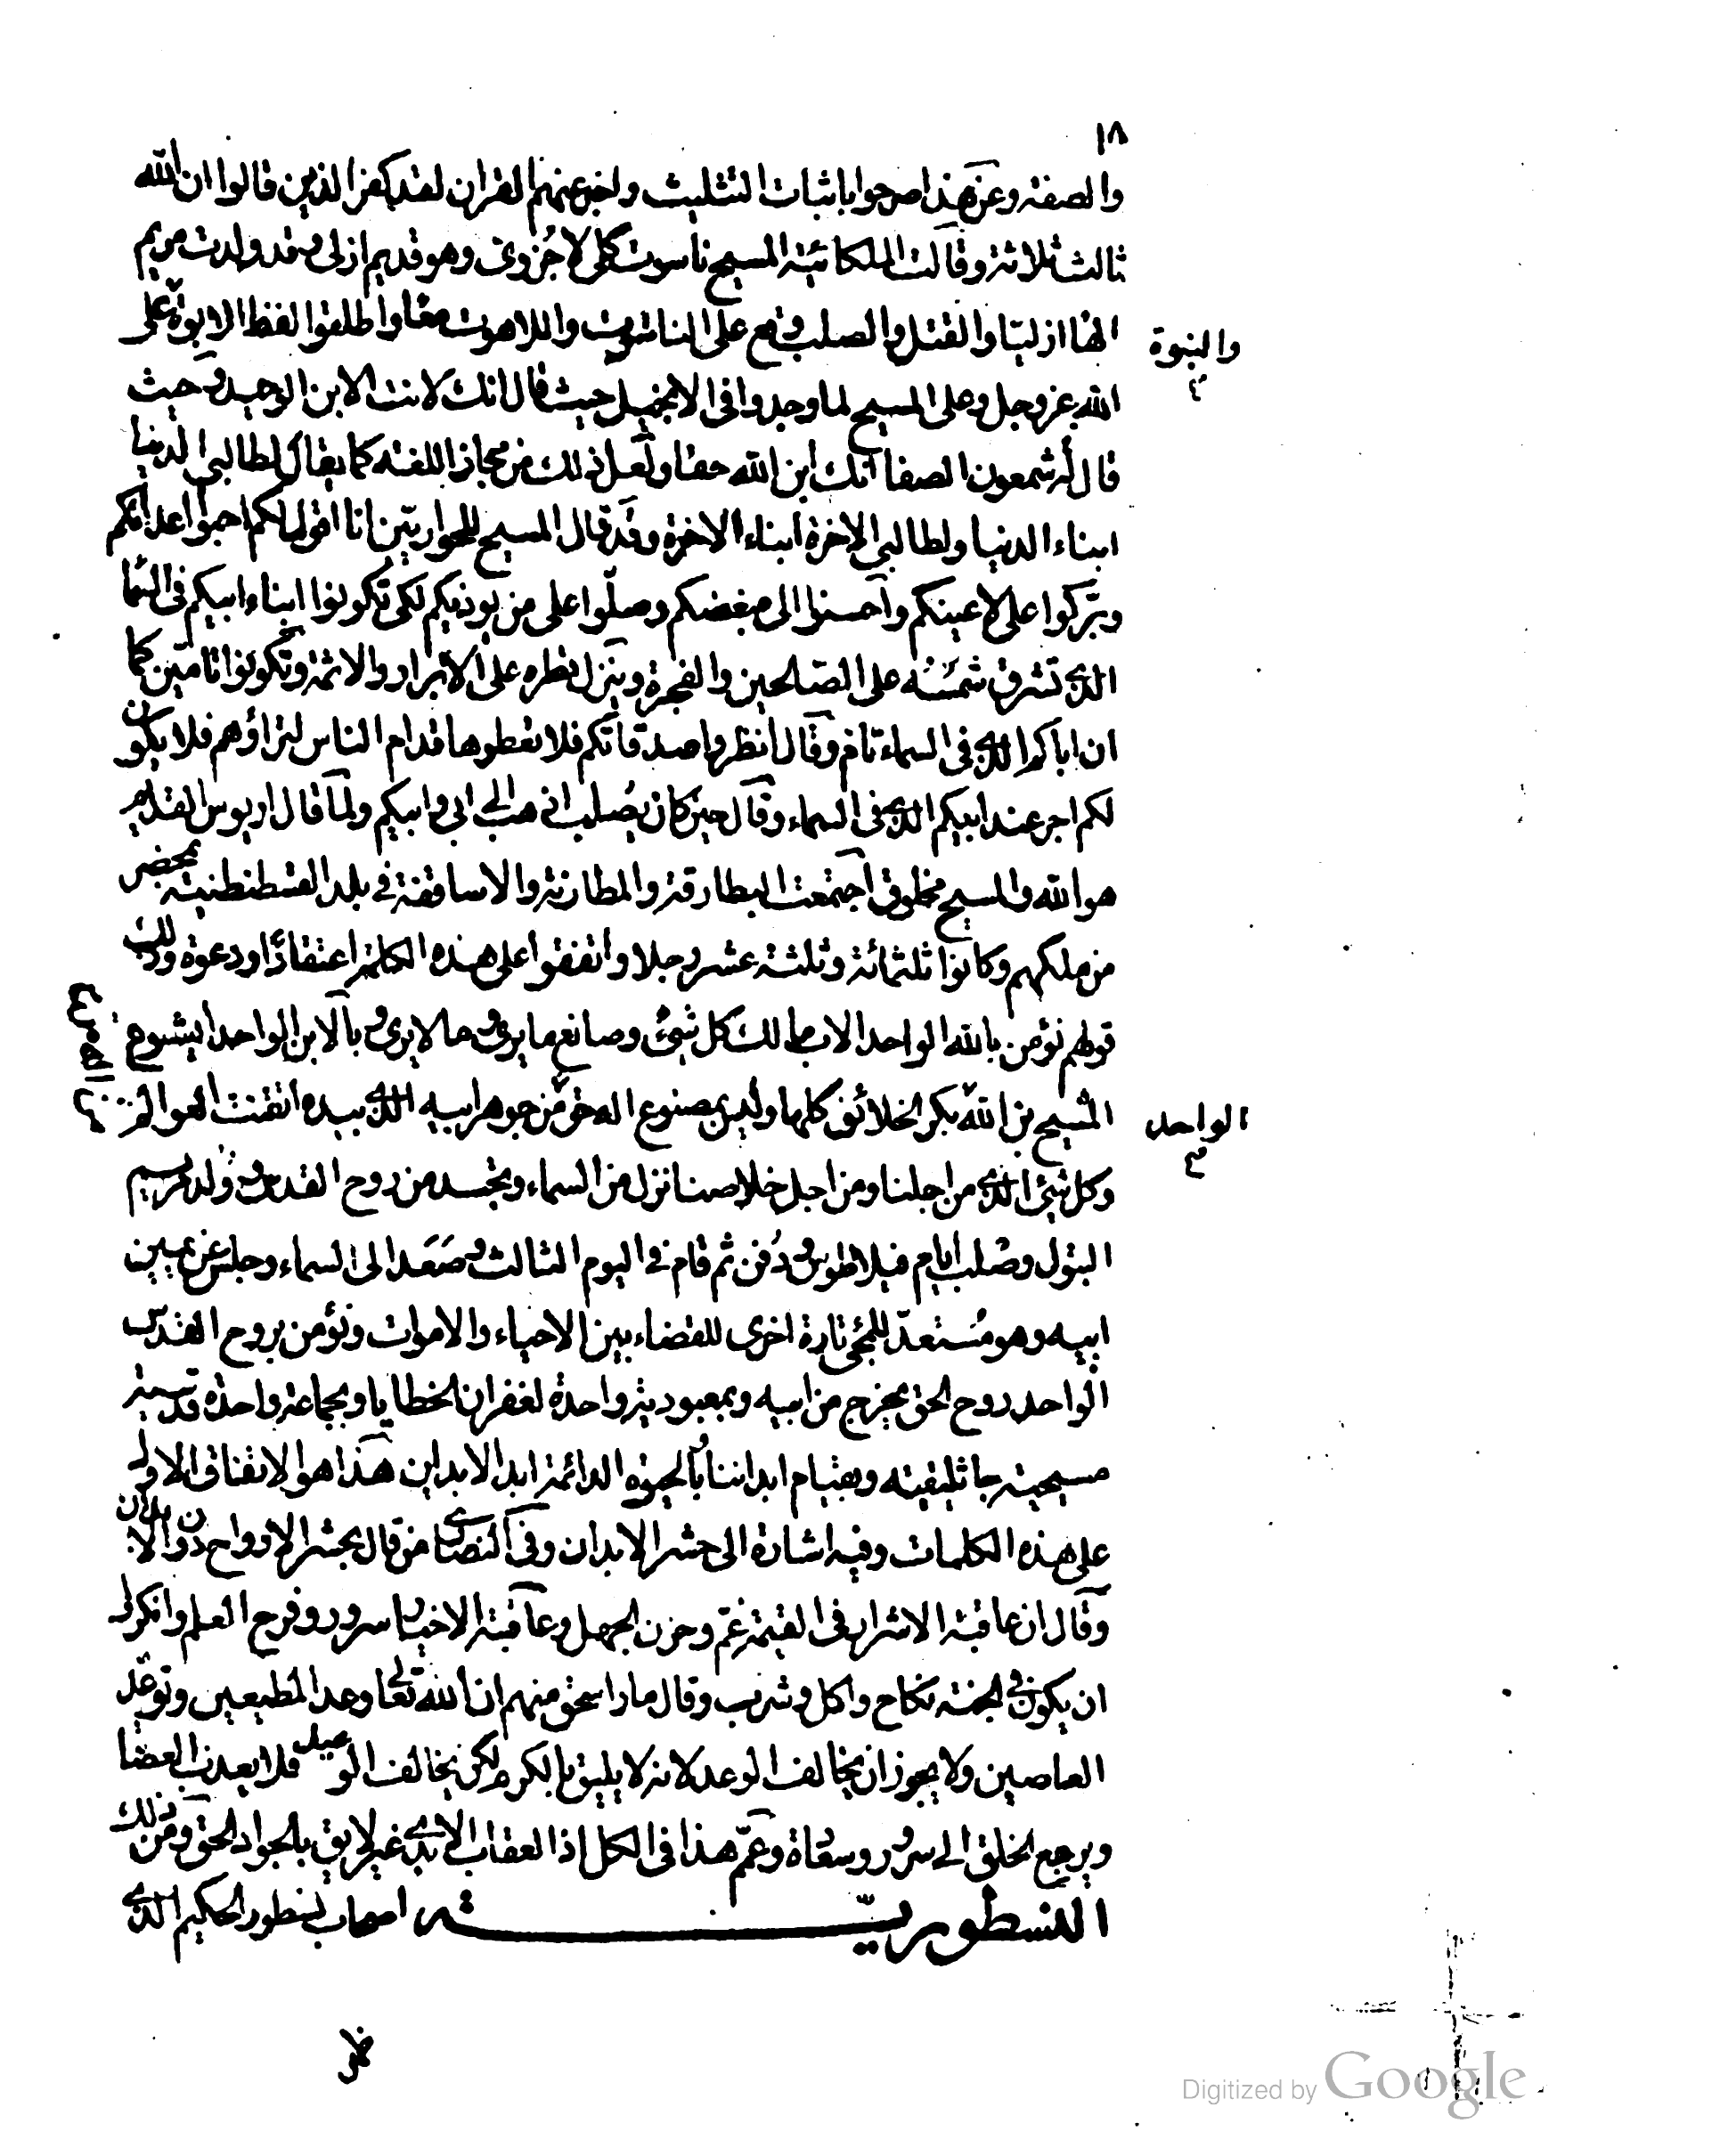 ١٨
والصفة وعن هذا صرحوا باثبات التثليث واخبر عنهم القران لقد كفر الذين قالوا ان الله
ثالث ثلاثة وقالت الملكائية المسيح ناسوت كلى لا جزوى وهو قديم ازلى وقد ولدت مريم
الها ازليا والقتل والصلب وقع على الناسوت واللاهوت معا واطلقوا لفظ الابوة على
والبنوة
الله عز وجل وعلى المسيح لما وجدوا فى الانجيل حيث قال انك لانت الابن الوحيد وحيث
قال له شمعون الصفا انك ابن الله حقا ولعل ذلك من مجاز اللغة كما يقال لطالبى الدنيا
ابناء الدنيا ولطالبى الاخرة ابناء الاخرة وقد قال المسيح للحواريين انا اقول لكم احبوا اعدائكم
وبركوا على لاعنيكم واحسنوا الى مبغضكم وصلوا على من يوذيكم لكى تكونوا ابناء ابيكم فى السما
الذى تشرق شمسه على الصالحين والفجرة وينزل قطره على الابرار والاثمة وتكونوا تامين كما
ان اباكم الذى فى السماء تام وقال انظروا صدقاتكم فلا تعطوها قدام الناس لتراؤهم فلا يكون
لكم اجر عند ابيكم الذى فى السماء وقال حين كان يصلب اذهب الى ابى وابيكم ولما قال اريوس القديم
هو الله والمسيح مخلوق اجتمعت البطارقة والمطارنة والاساقفة فى بلد القسطنطنية بمحضر
من ملكهم وكانوا ثلثمائة وثلثة عشر رجلا واتفقوا على هذه الكلمة اعتقادا ودعوة وذلك
قولهم نؤمن بالله الواحد الاب مالك كل شىء وصانع ما يرى وما لا يرى وبالابن الواحد ايشوع
المسيح بن الله بكر الخلائق كلها وليس بمصنوع اله حق من جوهر ابيه الذى بيده اتقنت العوالم
الواحد
وكل شئ الذى من اجلنا ومن اجل خلاصنا نزل من السماء وتجسد من روح القدس وولد من مريم
البتول وصلب ايام فيلاطوس ودفن ثم قام فى اليوم الثالث وصعد الى السماء وجلس عن يمين
ابيه وهو مستعد للمجئ تارة اخرى للقضاء بين الاحياء والاموات ونؤمن بروح القدس
الواحد روح الحق يخرج من ابيه وبمعبودية واحدة لغفران الخطايا وبجماعة واحدة قدسية
مسيحية جاثليقية وبقيام ابداننا بالحيوة الدائمة ابد الابدين هذا هو الاتفاق الاول
على هذه الكلمات وفيه اشارة الى حشر الابدان وفى النصارى من قال بحشر الارواح دون الابدان
وقال ان عاقبة الاشرار فى القيمة غم وحزن الجهل وعاقبة الاخيار سرور وفرح العلم وانكروا
ان يكون فى الجنة نكاح واكل وشرب وقال مار اسحق منهم ان الله تعالى وعد المطيعين وتوعد
العاصين ولا يجوز ان يخالف الوعد لانه لا يليق بالكريم لكن يخالف الوعيد فلا يعذب العصا
ويرجع الخلق الى سرور وسعادة وعمم هذا فى الكل اذ العقاب الابدى غير لايق بالجواد الحق ومن ذلك
النسطورية اصحاب نسطور الحكيم الذى
Digitized by Google